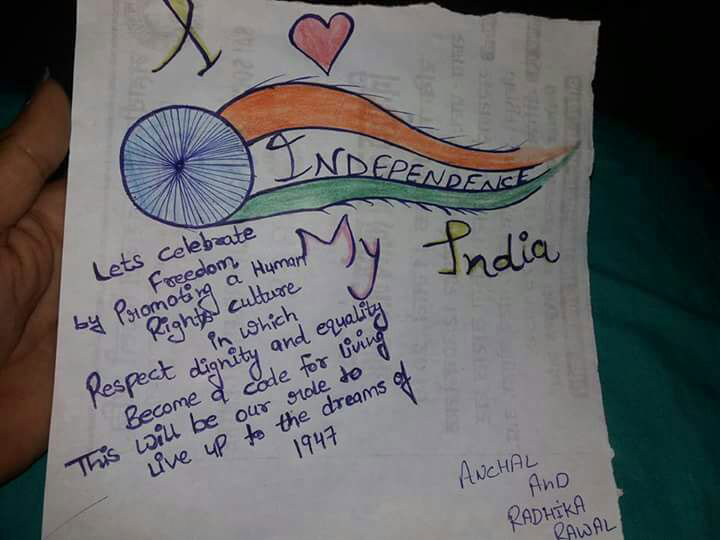 I
INDEPENDENCE
My India
Lets celebrate
Freedom
by Promoting a Human
Rights culture
in which
Respect dignity and equality
Become a code for living
This will be our role to
Live up to the dreams of
1947
ANCHAL
AND
RADHIKA
RAWAL